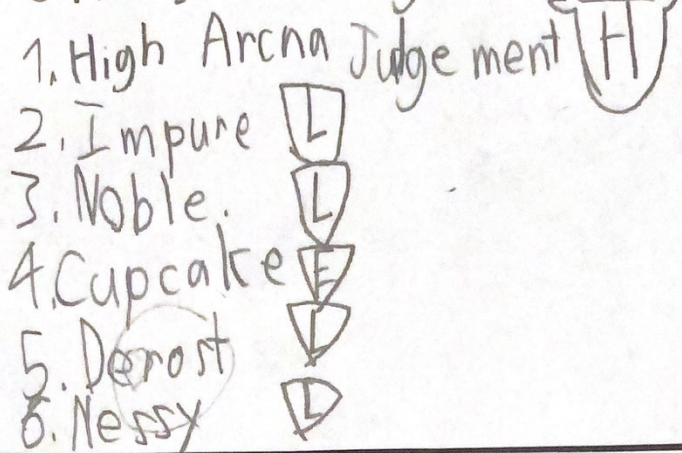 1. High Arcna Judgement H
2. Impure L
3. Noble. L
4. Cupcake E
5. Derost L
6. Nessy L